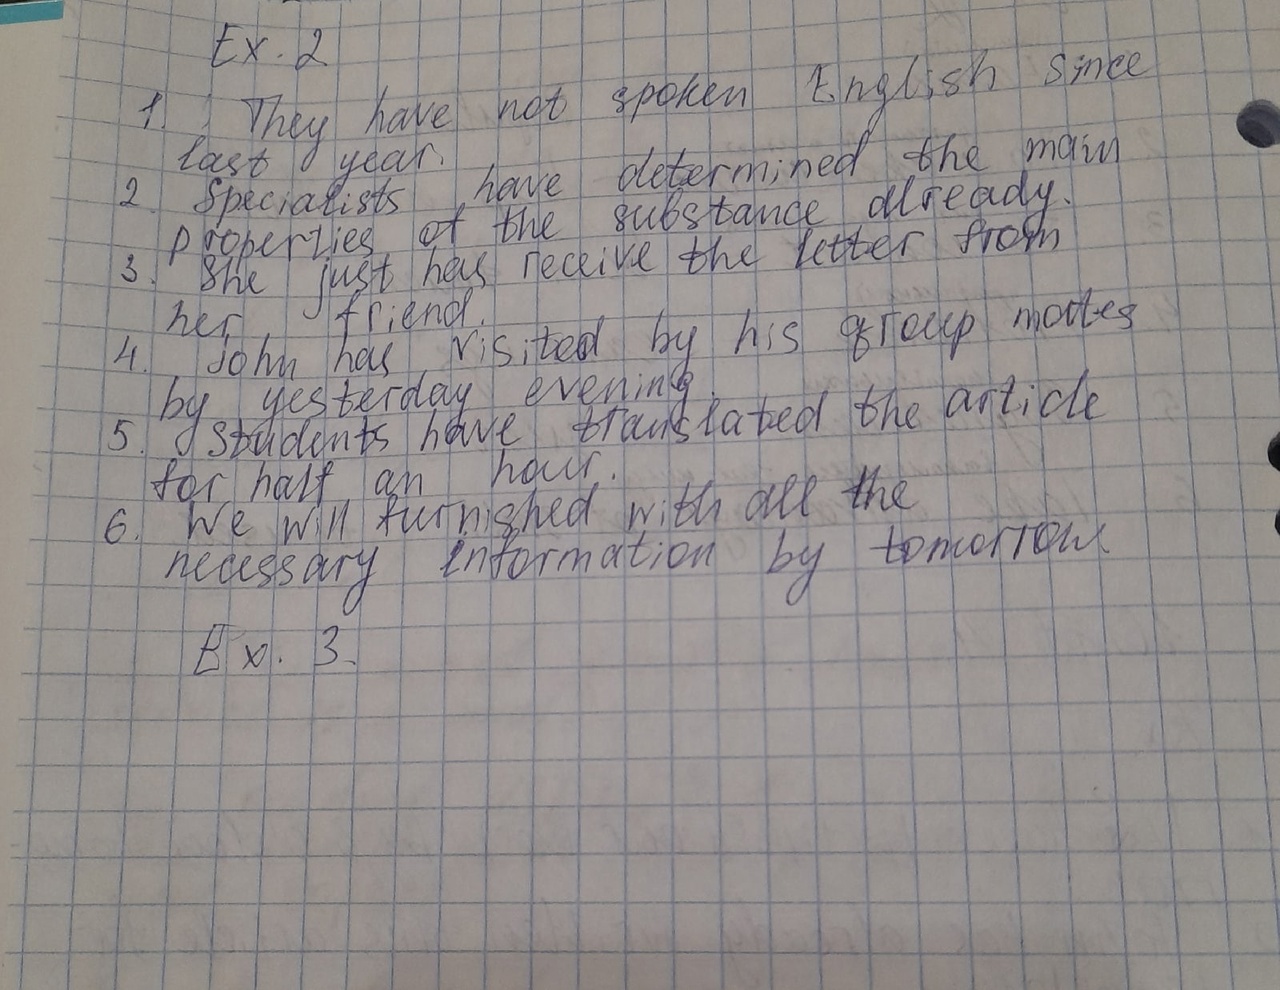 Ex. 2
1. They have not spoken English since
last year.
2. Specialists have determined the main
properties of the substance already.
3. She just has receive the letter from
her friend.
4. John has visited by his group mates
by yesterday evening.
5. Students have translated the article
for half an hour.
6. We will furnished with all the
necessary information by tomorrow.
Ex. 3.